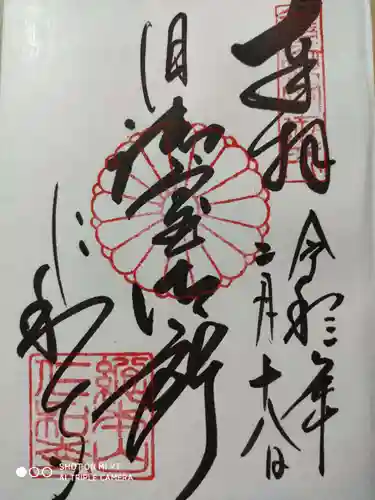 奉拝
令和三年
二月十八日
旧御室御所
仁和寺
總本山
仁和寺
SHOT ON MI 9T
AI TRIPLE CAMERA